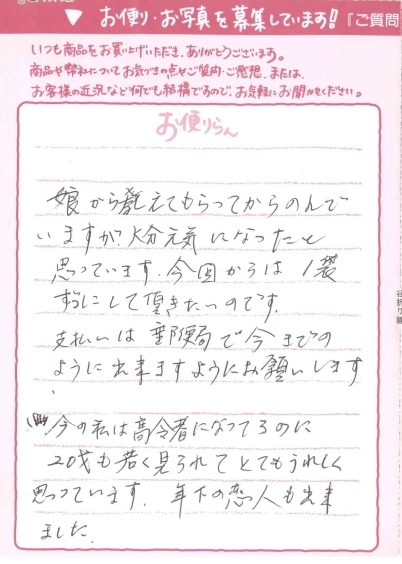 ▼ お便り・お写真を募集しています!!『ご質問
いつも商品をお買い上げいただき、ありがとうございます。
商品や弊社についてお気づきの点やご質問・ご感想、または、
お客様の近況など何でも結構ですので、お気軽にお聞かせください。
お便りらん
娘から教えてもらってからのんで
いますが?大分元気になったと
思っています.今回からは1袋
ずつにして頂きたいのです.
支払いは郵便局で今までの
ように出来ますようにお願いします
今の私は高令者になってるのに
20才も若く見られてとてもうれしく
思っています.年下の恋人も出来
ました.
谷折り線